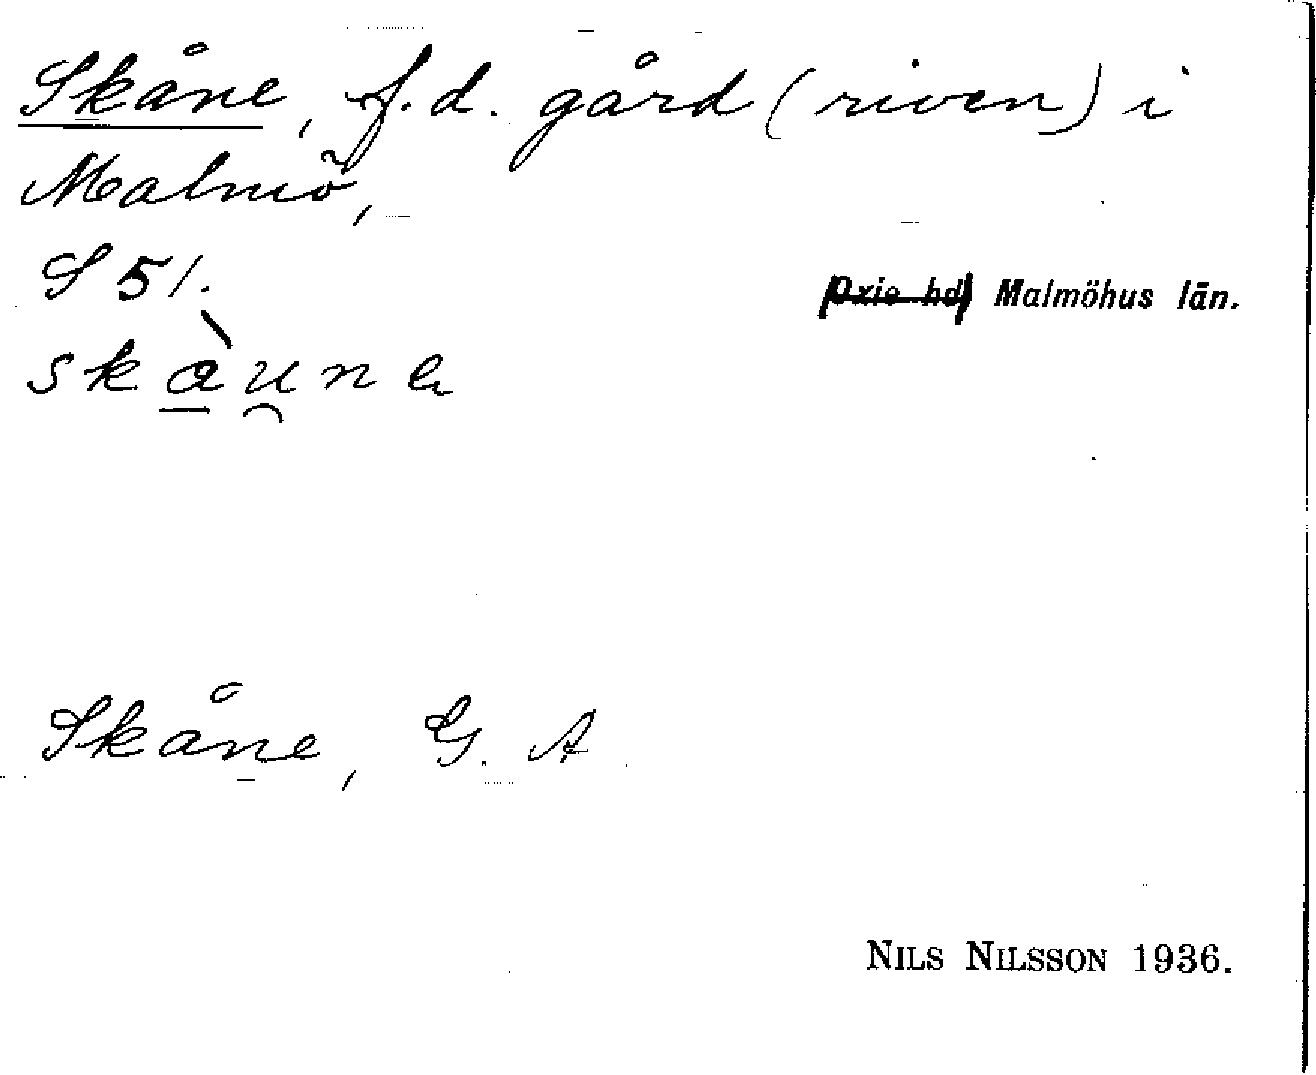 Skåne, f.d. gård (riven) i
Malmö,
S 51.
Oxie hd, Malmöhus län.
skàu̯nə
Skåne, G. A
NILS NILSSON 1936.